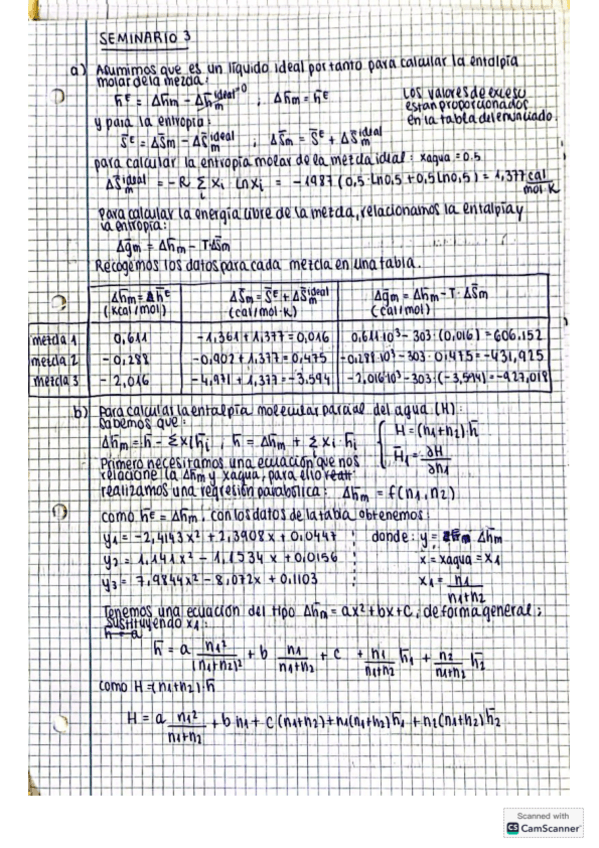 SEMINARIO 3
a) Asumimos que es un líquido ideal por tanto para calcular la entalpía
molar de la mezcla:
h̄ᴱ = Δh̄m - Δh̄m^ideal→0 ; Δh̄m = h̄ᴱ
Los valores de exceso
están proporcionados
en la tabla del enunciado.
y para la entropía:
S̄ᴱ = ΔS̄m - ΔS̄m^ideal ; ΔS̄m = S̄ᴱ + ΔS̄m^ideal
para calcular la entropía molar de la mezcla ideal: xagua = 0.5
ΔS̄m^ideal = -R Σi xi lnxi = -1'987 (0,5·ln0,5 + 0,5ln0,5) = 1,377 cal/mol·K
Para calcular la energía libre de la mezcla, relacionamos la entalpía y
la entropía:
Δḡm = Δh̄m - T·ΔS̄m
Recogemos los datos para cada mezcla en una tabla.
Δh̄m = Δh̄ᴱ (kcal/mol) ΔS̄m = S̄ᴱ + ΔS̄m^ideal (cal/mol·K) Δḡm = Δh̄m - T·ΔS̄m (cal/mol)
mezcla 1 0,611 -1,361 + 1,377 = 0,016 0,611·10³ - 303·(0,016) = 606.152
mezcla 2 -0,288 -0,902 + 1,377 = 0,475 -0,288·10³ - 303·0,475 = -431,925
mezcla 3 -2,016 -4,971 + 1,377 = -3,594 -2,016·10³ - 303·(-3,594) = -927,018
b) Para calcular la entalpía molecular parcial del agua (H):
Sabemos que:
Δh̄m = h̄ - Σxi h̄i , h̄ = Δh̄m + Σ xi·h̄i
{ H = (n1+n2)·h̄
H̄1 = ∂H/∂n1
Primero necesitamos una ecuación que nos
relacione la Δh̄m y xagua, para ello
realizamos una regresión parabólica: Δh̄m = f(n1,n2)
como h̄ᴱ = Δh̄m, con los datos de la tabla obtenemos:
y1 = -2,4143x² + 2,3908x + 0,0447 ; donde: y = Δh̄m
y2 = 1,141x² - 1,1534x + 0,0156 ; x = xagua = x1
y3 = 7,9844x² - 8,072x + 0,1103 ; x1 = n1/(n1+n2)
Tenemos una ecuación del tipo Δh̄m = ax² + bx + c, de forma general;
Sustituyendo x1:
h̄ = a n1²/(n1+n2)² + b n1/(n1+n2) + c + n1/(n1+n2) h̄1 + n2/(n1+n2) h̄2
como H = (n1+n2)·h̄
H = a n1²/(n1+n2) + b n1 + c (n1+n2) + n1(n1+n2)h̄1 + n2(n1+n2)h̄2
Scanned with
CS CamScanner